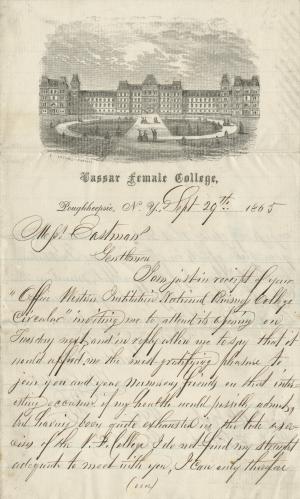 Vassar Female College,
Poughkeepsie, N. Y. Sept 29th. 1865
Messrs Eastman
Gentlemen
I am just in receipt of your
"Office Western Institution National Business College
Circular" inviting me to attend its opening on
Tuesday next, and in reply allow me to say that it
would afford me the most gratifying pleasure to
join you and your numerous friends on that inter-
esting occasion if my health would possibly admit,
but having been quite exhausted in the late exer-
cises of the V. F. College I do not find my strength
adequate to meet with you, I can only therefore
(over)